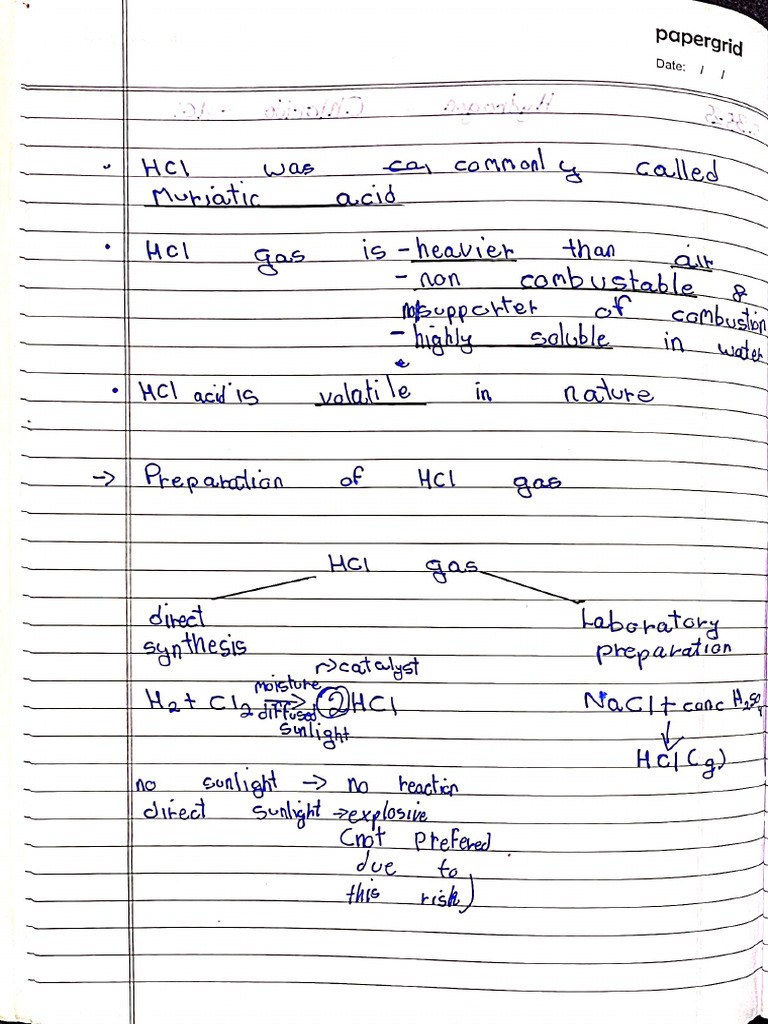 papergrid
Date: / /
HCl was ca, commonly called
Muriatic acid
HCl gas is - heavier than air
- non combustable &
not supporter of combustion
- highly soluble in water
HCl acid is volatile in nature
→ Preparation of HCl gas
HCl gas
direct synthesis
↱ catalyst
H2 + Cl2 moisture → diffused sunlight 2 HCl
no sunlight → no reaction
direct sunlight → explosive
(not prefered
due to
this risk)
Laboratory preparation
NaCl + conc H2SO4
↓
HCl (g)